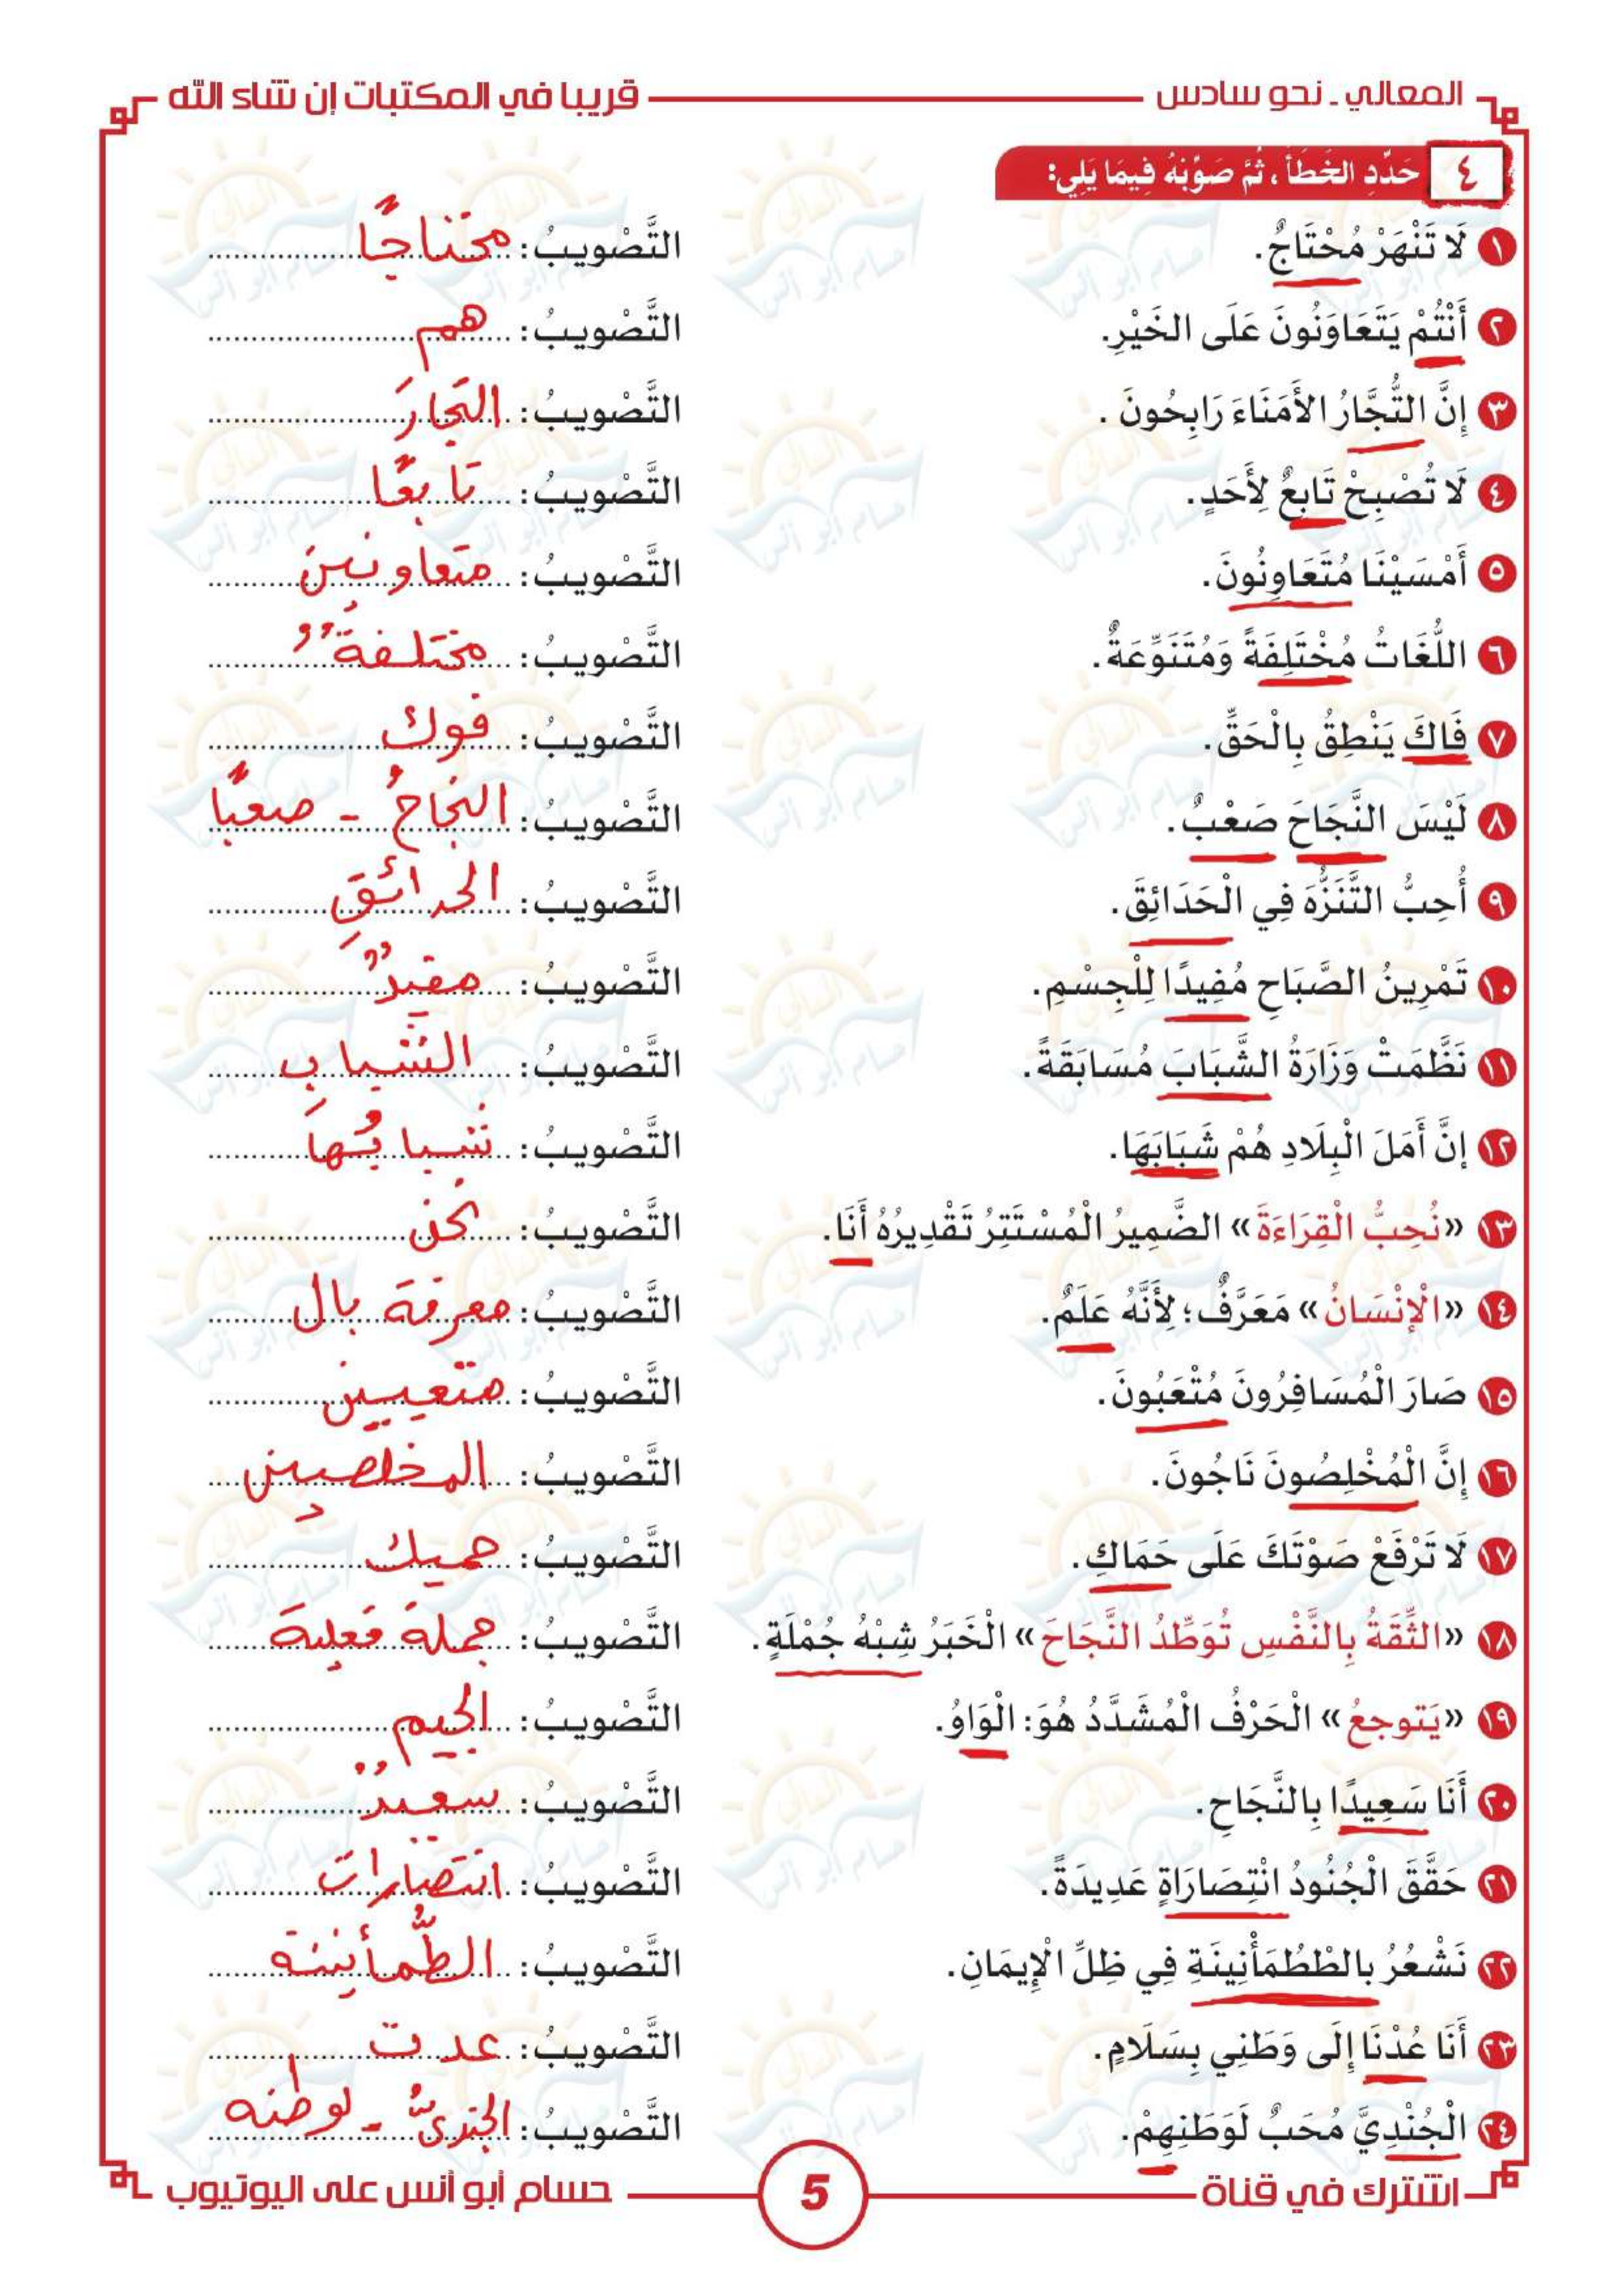 المعالي ـ نحو سادس
قريبا في المكتبات إن شاء الله
٤ حَدِّدِ الخَطَأَ ، ثُمَّ صَوِّبْهُ فِيمَا يَلِي:
١ لَا تَنْهَرْ مُحْتَاجٌ. التَّصْوِيبُ: محتاجًا
٢ أَنْتُمْ يَتَعَاوَنُونَ عَلَى الخَيْرِ. التَّصْوِيبُ: هم
٣ إِنَّ التُّجَّارُ الأَمَنَاءَ رَابِحُونَ . التَّصْوِيبُ: التجارَ
٤ لَا تُصْبِحْ تَابِعٌ لِأَحَدٍ. التَّصْوِيبُ: تابعًا
٥ أَمْسَيْنَا مُتَعَاوِنُونَ. التَّصْوِيبُ: متعاونين
٦ اللُّغَاتُ مُخْتَلِفَةً وَمُتَنَوِّعَةٌ. التَّصْوِيبُ: مختلفةٌ
٧ فَاكَ يَنْطِقُ بِالْحَقِّ. التَّصْوِيبُ: فوك
٨ لَيْسَ النَّجَاحَ صَعْبٌ. التَّصْوِيبُ: النجاحُ - صعبًا
٩ أُحِبُّ التَّنَزُّهَ فِي الْحَدَائِقَ. التَّصْوِيبُ: الحدائقِ
١٠ تَمْرِينُ الصَّبَاحِ مُفِيدًا لِلْجِسْمِ. التَّصْوِيبُ: مفيدٌ
١١ نَظَّمَتْ وَزَارَةُ الشَّبَابَ مُسَابَقَةً. التَّصْوِيبُ: الشبابِ
١٢ إِنَّ أَمَلَ الْبِلَادِ هُمْ شَبَابَهَا. التَّصْوِيبُ: شبابُها
١٣ «نُحِبُّ الْقِرَاءَةَ» الضَّمِيرُ الْمُسْتَتِرُ تَقْدِيرُهُ أَنَا. التَّصْوِيبُ: نحن
١٤ «الْإِنْسَانُ» مَعَرَّفٌ؛ لِأَنَّهُ عَلَمٌ. التَّصْوِيبُ: معرفة بال
١٥ صَارَ الْمُسَافِرُونَ مُتْعَبُونَ. التَّصْوِيبُ: متعبين
١٦ إِنَّ الْمُخْلِصُونَ نَاجُونَ. التَّصْوِيبُ: المخلصين
١٧ لَا تَرْفَعْ صَوْتَكَ عَلَى حَمَاكِ. التَّصْوِيبُ: حميك
١٨ «الثِّقَةُ بِالنَّفْسِ تُوَطِّدُ النَّجَاحَ» الْخَبَرُ شِبْهُ جُمْلَةٍ. التَّصْوِيبُ: جملة فعلية
١٩ «يَتوجعُ» الْحَرْفُ الْمُشَدَّدُ هُوَ: الْوَاوُ. التَّصْوِيبُ: الجيم
٢٠ أَنَا سَعِيدًا بِالنَّجَاحِ. التَّصْوِيبُ: سعيدٌ
٢١ حَقَّقَ الْجُنُودُ انْتِصَارَاةٍ عَدِيدَةً. التَّصْوِيبُ: انتصارات
٢٢ نَشْعُرُ بِالطْطُمَأْنِينَةِ فِي ظِلِّ الْإِيمَانِ. التَّصْوِيبُ: الطُّمأنينة
٢٣ أَنَا عُدْنَا إِلَى وَطَنِي بِسَلَامٍ. التَّصْوِيبُ: عدت
٢٤ الْجُنْدِيَّ مُحَبٌ لَوَطَنِهِمْ. التَّصْوِيبُ: الجنديُّ - لوطنه
اشترك في قناة
5
حسام أبو أنس على اليوتيوب